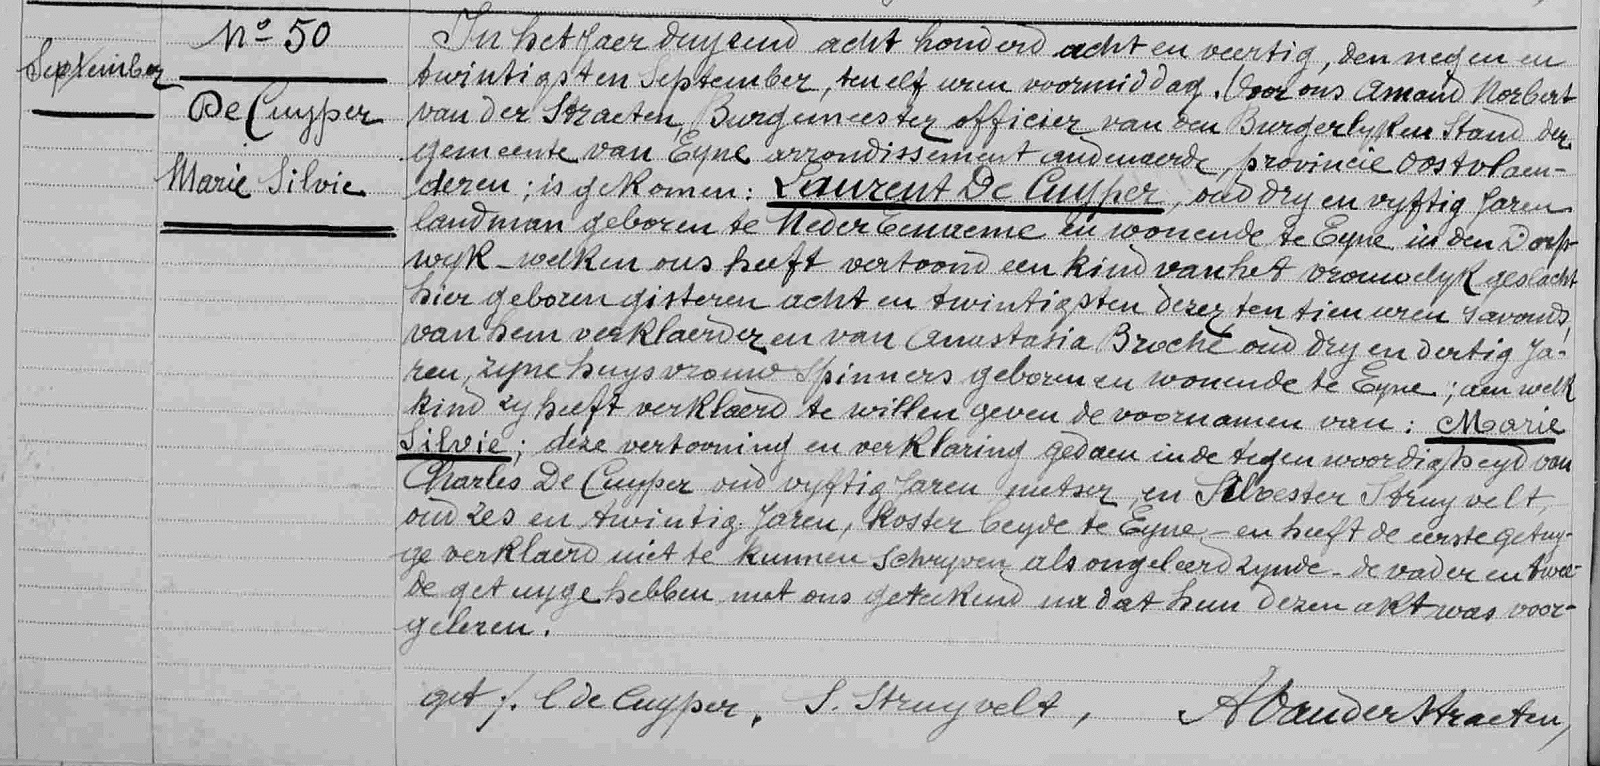 September
Nº 50
De Cuyper
Marie Silvie
In het Jaer duyzend acht honderd acht en veertig, den negen en
twintigsten September, ten elf uren voormiddag. Voor ons Amand Norbert
van der Straeten, Burgemeester officier van den Burgerlyken Stand der
gemeente van Eyne arrondissement audenaerde, provincie oostvlaen-
deren ; is gekomen : Laurent De Cuyper, oud dry en vyftig Jaren
landman geboren te Neder Eenaeme en wonende te Eyne in den Dorp
wyk - welken ons heeft vertoond een kind van het vrouwelyk geslacht
hier geboren gisteren acht en twintigsten dezer ten tien uren savonds,
van hem verklaerder en van Anastasia Broché oud dry en dertig Ja-
ren, zyne huysvrouw Spinners geboren en wonende te Eyne ; aen welk
kind zy heeft verklaerd te willen geven de voornamen van : Marie
Silvie ; deze vertooning en verklaring gedaen in de tegenwoordigheyd van
Charles De Cuyper oud vyftig Jaren metser, en Silvester Struyvelt,
oud zes en twintig Jaren, Koster beyde te Eyne - en heeft de eerste getuy-
ge verklaerd niet te kunnen Schryven als ongeleerd zynde - de vader en twee-
de getuyge hebben met ons geteekend na dat hun dezen akt was voor-
gelezen.
get /. L de Cuyper, S. Struyvelt, A Vanderstraeten,